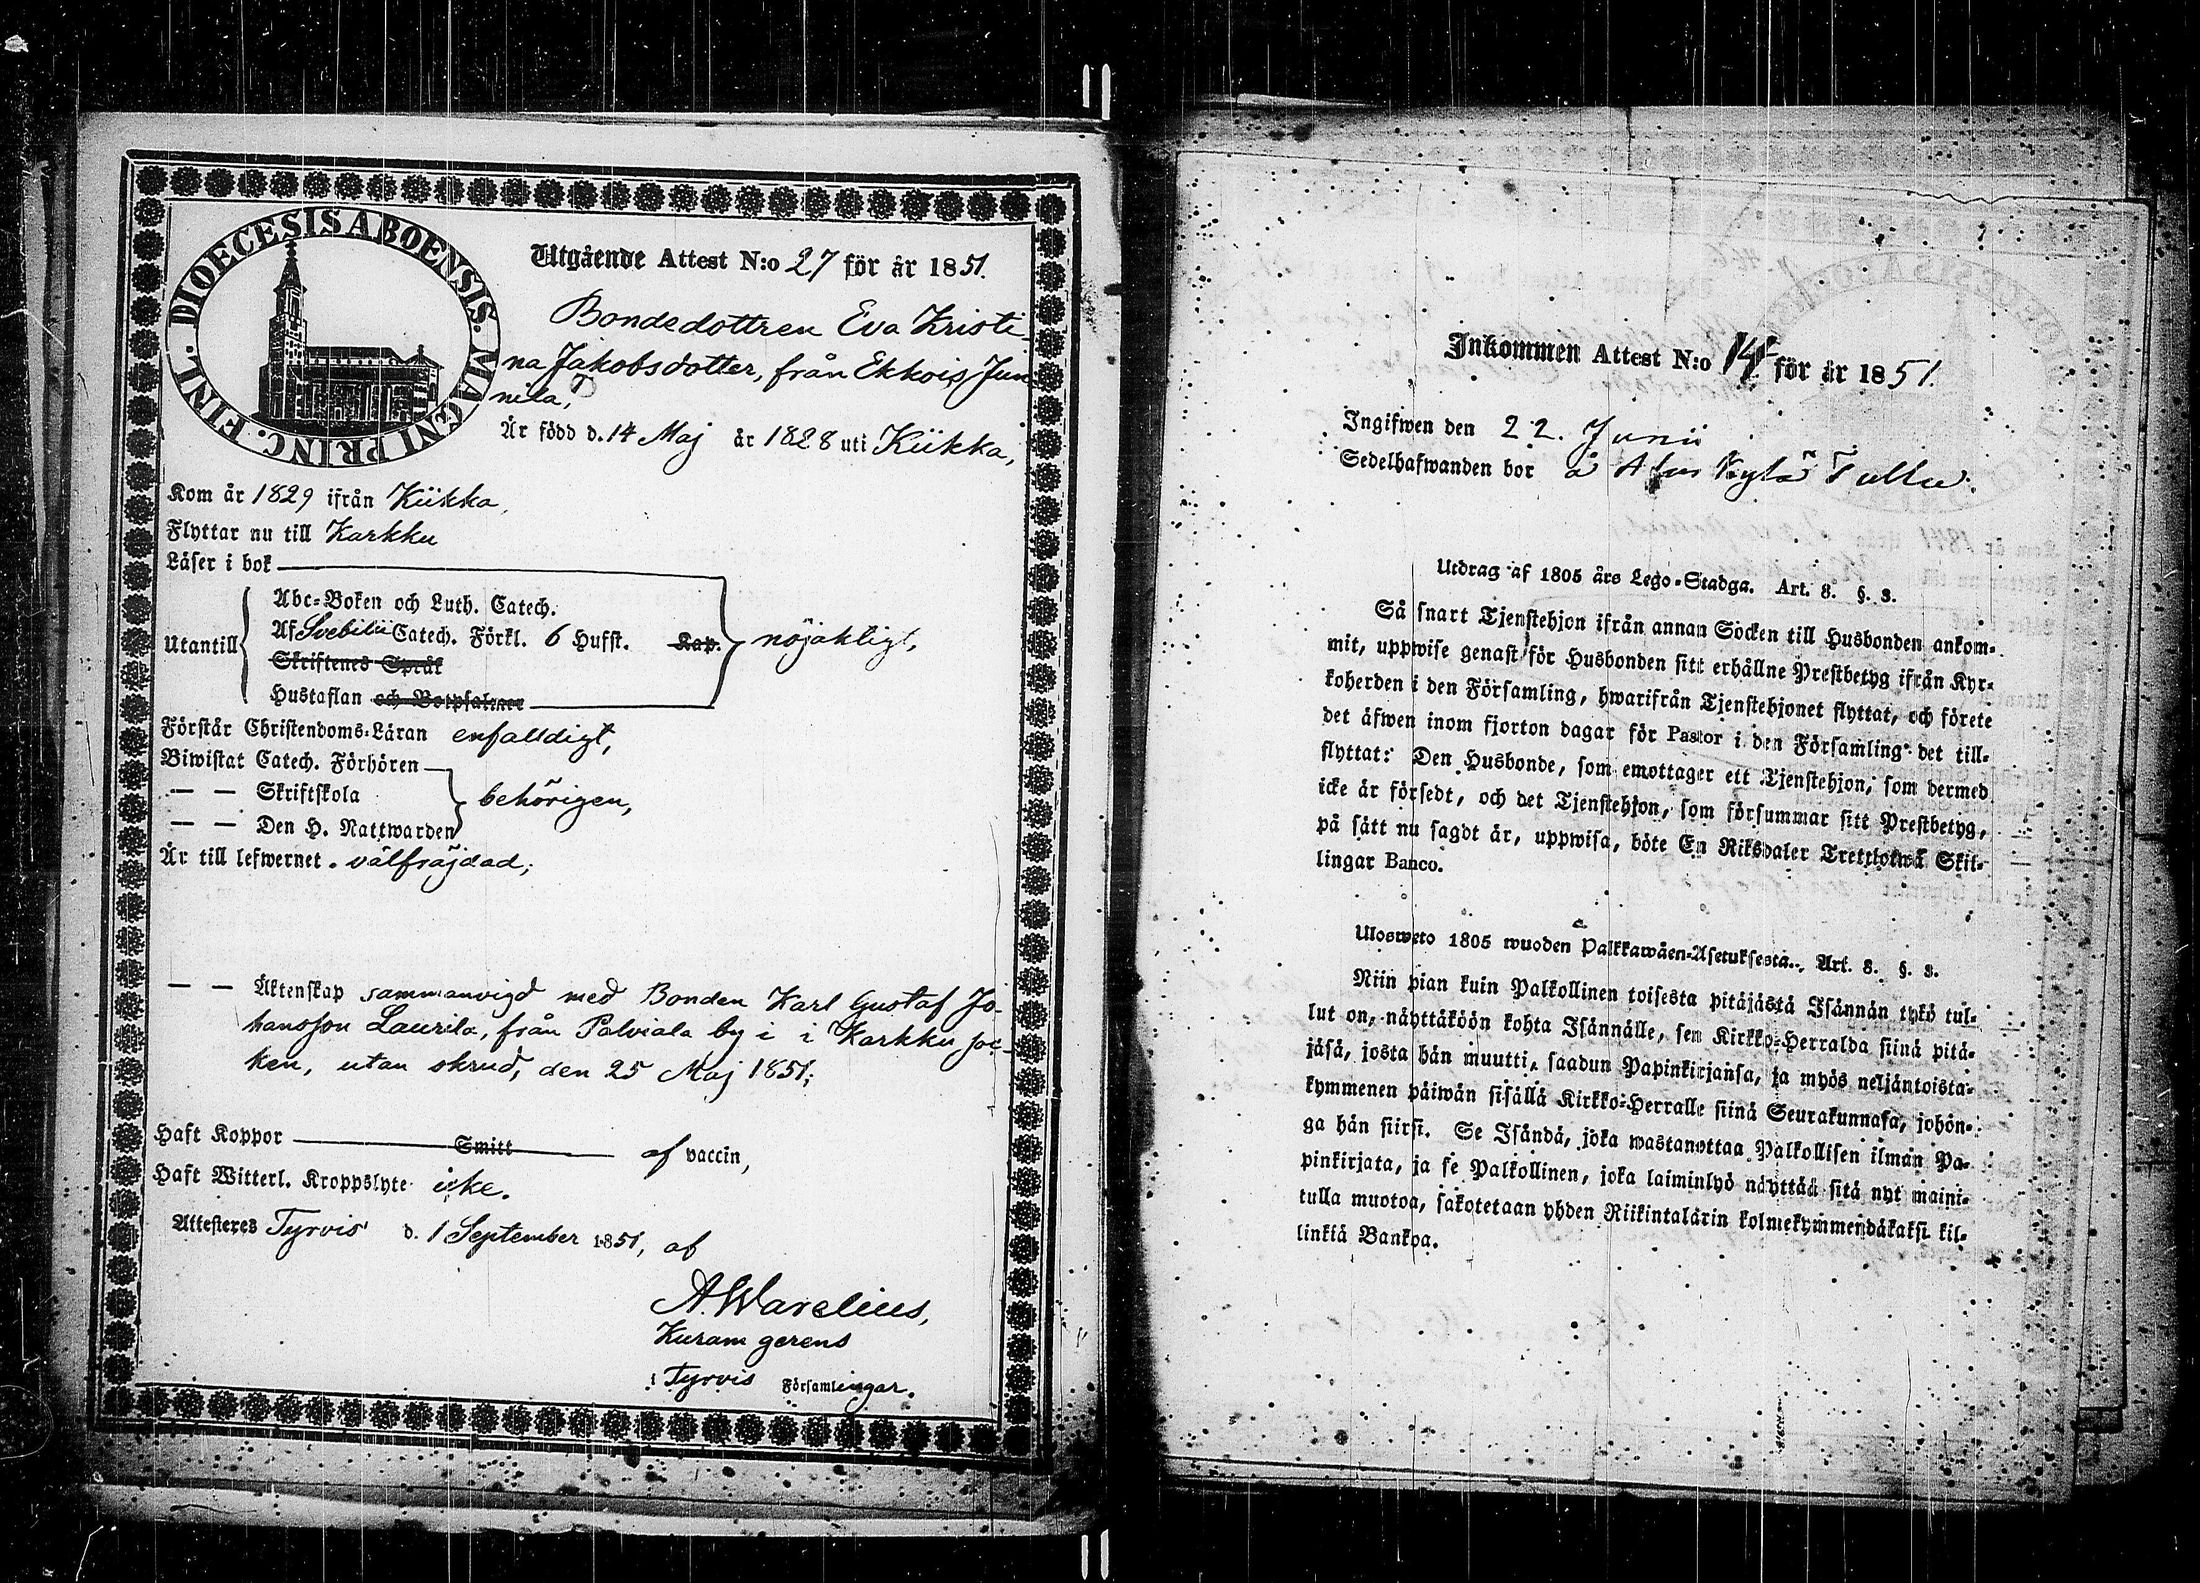 DIOECESIS ABOENSIS. MAGNI PRINC. FINL.
Utgående Attest N:o 27 för år 1851.
Bondedottren Eva Kristi-
na Jakobsdotter, från Ekkois Jun-
nila,
Är född d. 14 Maj år 1828 uti Kiikka,
Kom år 1829 ifrån Kiikka,
Flyttar nu till Karkku
Läser i bok
Abc-Boken och Luth. Catech.
Utantill Af Svebilii Catech. Förkl. 6 Hufst. Kap. nöjaktligt,
Skriftenes Språk
Hustaflan och Botpsalmer
Förstår Christendoms-Läran enfalldigt,
Biwistat Catech. Förhören
— — Skriftskola behörigen,
— — Den H. Nattwarden
Är till lefwernet välfräjdad;
— — Äktenskap sammanvigd med Bonden Karl Gustaf Jo-
hansson Laurila, från Palviala by i i Karkku soc-
ken, utan skrud, den 25 Maj 1851;
Haft Koppor Smitt af vaccin,
Haft Witterl. Kroppslyte icke.
Attesteres Tyrvis d. 1 September 1851, af
A. Warelius,
Kuram gerens
i Tyrvis Församlingar.
Inkommen Attest N:o 14 för år 1851.
Ingifwen den 22. Junii
Sedelhafwanden bor å Kylä Tulli
Utdrag af 1805 års Lego-Stadga. Art. 8. §. 3.
Så snart Tjenstehjon ifrån annan Socken till Husbonden ankom-
mit, uppwise genast för Husbonden sitt erhållne Prestbetyg ifrån Kyr-
koherden i den Församling, hwarifrån Tjenstehjonet flyttat, och förete
det äfwen inom fjorton dagar för Pastor i den Församling det till-
flyttat: Den Husbonde, som emottager ett Tjenstehjon, som dermed
icke är försedt, och det Tjenstehjon, som försummar sitt Prestbetyg,
på sätt nu sagdt är, uppwisa, böte En Riksdaler Trettiotwå Skil-
lingar Banco.
Ulosweto 1805 wuoden Palkkawäen-Asetuksesta. Art. 8. §. 3.
Niin pian kuin Palkollinen toisesta pitäjästä Isännän tykö tul-
lut on, näyttäköön kohta Isännälle, sen Kirkko-Herralda siinä pitä-
jäsä, josta hän muutti, saadun Papinkirjansa, ja myös neljäntoista-
kymmenen päiwän sisällä Kirkko-Herralle siinä Seurakunnasa, johon-
ga hän siirsi. Se Isändä, joka wastanottaa Palkollisen ilman Pa-
pinkirjata, ja se Palkollinen, joka laiminlyö näyttää sitä nyt maini-
tulla muotoa, sakotetaan yhden Riikintalarin kolmekymmendäkaksi kil-
linkiä Bankoa.